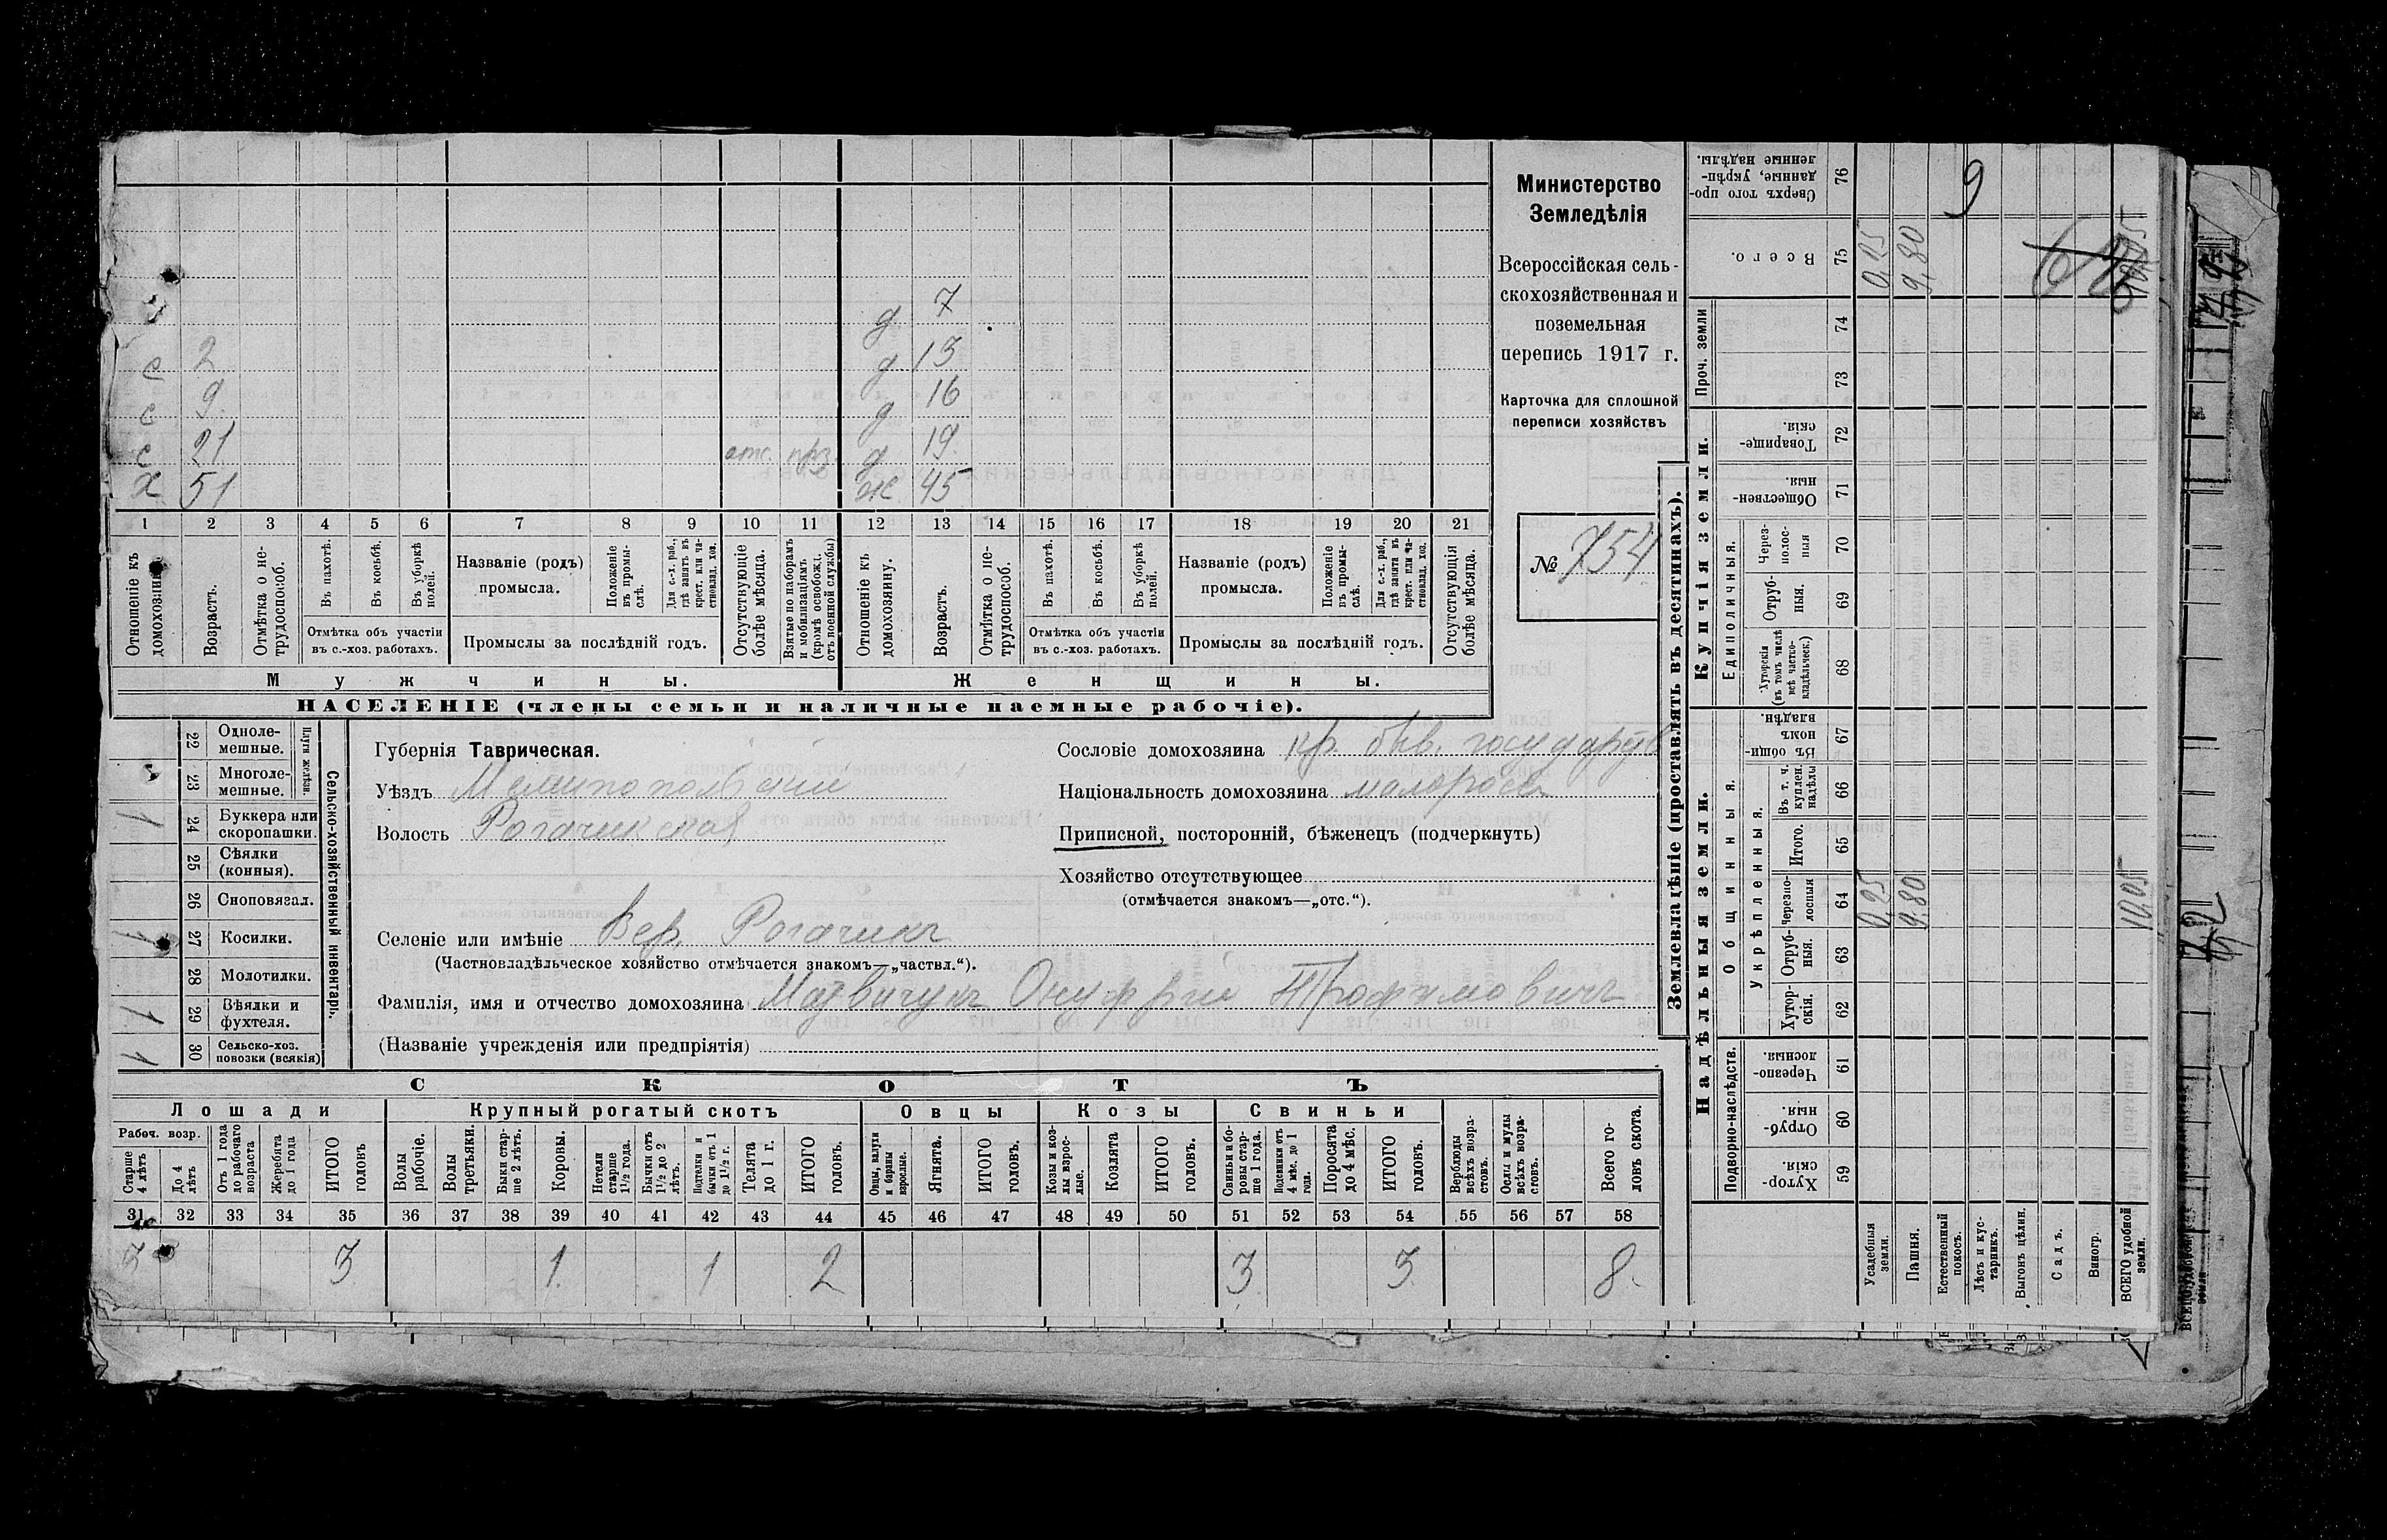 Министерство
Земледѣлія
Всероссійская сель-
скохозяйственная и
поземельная
перепись 1917 г.
Карточка для сплошной
переписи хозяйствъ
№ 754
д 7
с 2 д 13
с 9 д 16
с 21 отс. д 19
х 51 ж 45
1 2 3 4 5 6 7 8 9 10 11 12 13 14 15 16 17 18 19 20 21
Отношеніе къ домохозяину.
Возрастъ.
Отмѣтка о не-трудоспособ.
Въ пахотѣ.
Въ косьбѣ.
Въ уборкѣ полей.
Отмѣтка объ участіи
въ с.-хоз. работахъ.
Названіе (родъ)
промысла.
Положеніе въ промы-слѣ.
Для с.-х. раб., гдѣ занятъ въ крест. или ча-стновлад. хоз.
Промыслы за послѣдній годъ.
Отсутствующіе болѣе мѣсяца.
Взятые по наборамъ и мобилизаціямъ (кромѣ освобожд. отъ военной службы)
Отношеніе къ домохозяину.
Возрастъ.
Отмѣтка о не-трудоспособ.
Въ пахотѣ.
Въ косьбѣ.
Въ уборкѣ полей.
Отмѣтка объ участіи
въ с.-хоз. работахъ.
Названіе (родъ)
промысла.
Положеніе въ промы-слѣ.
Для с.-х. раб., гдѣ занята въ крест. или ча-стновлад. хоз.
Промыслы за послѣдній годъ.
Отсутствующія болѣе мѣсяца.
Мужчины.
Женщины.
НАСЕЛЕНІЕ (члены семьи и наличные наемные рабочіе).
Сельско-хозяйственный инвентарь.
Плуги желѣзн.
22 Одноле-мешные.
23 Многоле-мешные.
1 24 Буккера или скоропашки.
25 Сѣялки (конныя).
26 Сноповязал.
1 27 Косилки.
28 Молотилки.
1 29 Вѣялки и фухтеля.
1 30 Сельско-хоз. повозки (всякія)
Губернія Таврическая.
Уѣздъ Мелитопольскій
Волость Рогачикская
Сословіе домохозяина кр. быв. государств
Національность домохозяина малоросъ
Приписной, посторонній, бѣженецъ (подчеркнуть)
Хозяйство отсутствующее
(отмѣчается знакомъ—„отс.“).
Селеніе или имѣніе Вер. Рогачикъ
(Частновладѣльческое хозяйство отмѣчается знакомъ—„частвл.“).
Фамилія, имя и отчество домохозяина Матвичукъ Онуфрій Трофимовичъ
(Названіе учрежденія или предпріятія)
СКОТЪ
Лошади
Крупный рогатый скотъ
Овцы
Козы
Свиньи
Рабоч. возр.
Старше 4 лѣтъ
До 4 лѣтъ
Отъ 1 года до рабочаго возраста
Жеребята до 1 года
ИТОГО головъ
Волы рабочіе.
Волы третьяки.
Быки стар-ше 2 лѣтъ.
Коровы.
Нетели старше 1½ года.
Бычки отъ 1½ до 2 лѣтъ.
Подтелки и бычки отъ 1 до 1½ г.
Телята до 1 г.
ИТОГО головъ.
Овцы, валухи и бараны взрослые.
Ягнята.
ИТОГО головъ.
Козы и коз-лы взрос-лые.
Козлята
ИТОГО головъ.
Свиньи и бо-ровы стар-ше 1 года.
Подсвинки отъ 4 мѣс. до 1 года.
Поросята до 4 мѣс.
ИТОГО головъ.
Верблюды всѣхъ возра-стовъ.
Ослы и мулы всѣхъ возра-стовъ.
Всего го-ловъ скота.
31 32 33 34 35 36 37 38 39 40 41 42 43 44 45 46 47 48 49 50 51 52 53 54 55 56 57 58
3 3 1 1 2 3 3 8
Землевладѣніе (проставлять въ десятинахъ).
Купчія земли.
Надѣльныя земли.
Сверхъ того про-данные, укрѣп-ленные надѣлы. 76 9
Всего. 75 0,25 9,80
Проч. земли 74 73
Товарище-скія. 72
Обществен-ныя. 71
Единоличныя.
Через-полос-ныя 70
Отруб-ныя. 69
Хуторскія (въ томъ числѣ всѣ частно-владѣльческ.) 68
Общинныя.
Въ общин-номъ владѣн. 67
Укрѣпленныя.
Въ т. ч. куплен. надѣлы 66
Итого. 65
Черезпо-лосныя 64 0,25 9,80 10,05
Отруб-ныя. 63
Хутор-скія. 62
Подворно-наслѣдств.
Черезпо-лосныя. 61
Отруб-ныя. 60
Хутор-скія. 59
Усадебныя земли.
Пашня.
Естественный покосъ.
Лѣсъ и кус-тарникъ.
Выгонъ цѣлин.
Садъ.
Виногр.
ВСЕГО удобной земли.